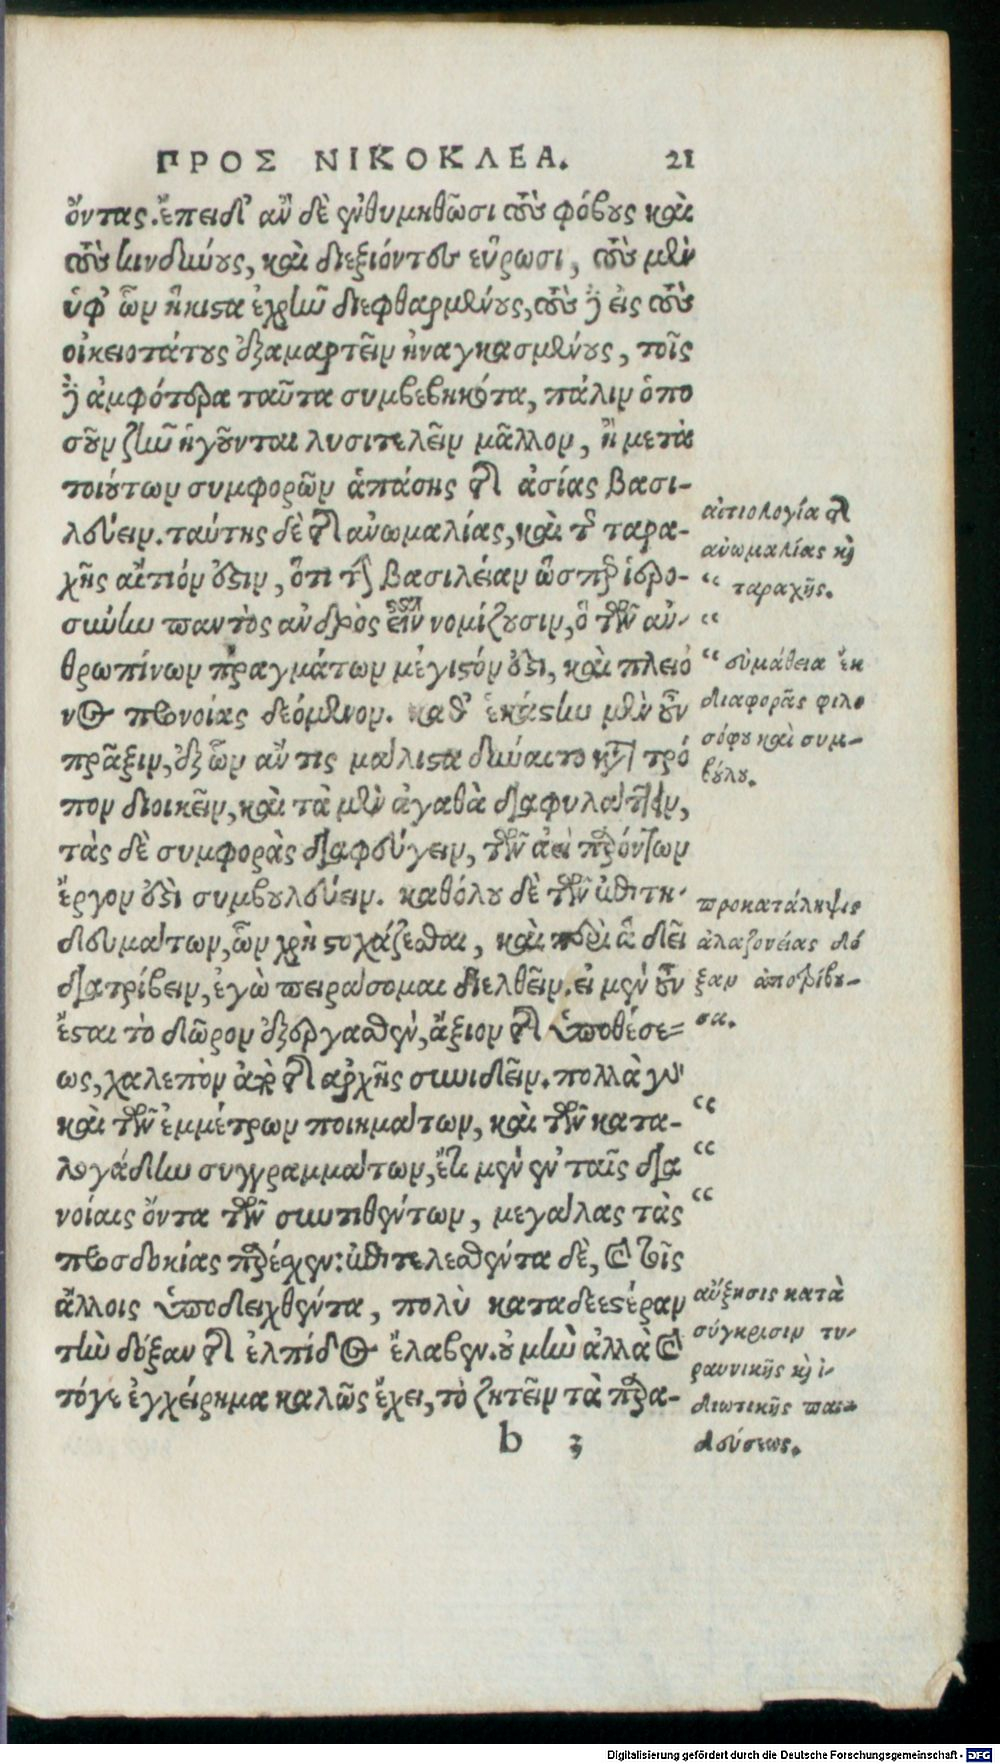 ΠΡΟΣ ΝΙΚΟΚΛΕΑ. 21
ὄντας. ἔπειδ' ἂν δὲ ἐνθυμηθῶσι τοὺς φόβους καὶ
τοὺς κινδύνους, καὶ διεξιόντες εὕρωσι, τοὺς μὲν
ὑφ' ὧν ἥκιστα ἐχρῆν διεφθαρμένους, τοὺς δ' εἰς τοὺς
οἰκειοτάτους ἐξαμαρτεῖν ἠναγκασμένους, τοῖς
δ' ἀμφότερα ταῦτα συμβεβηκότα, πάλιν ὁπο
σοῦν ζῆν ἡγοῦνται λυσιτελεῖν μᾶλλον, ἢ μετὰ
τοιούτων συμφορῶν ἁπάσης τῆς ἀσίας βασι-
λεύειν. ταύτης δὲ τῆς ἀνωμαλίας, καὶ τῆς ταρα-
χῆς αἴτιόν ἐστιν, ὅτι τὴν βασιλείαν ὥσπερ ἱερο-
σύνην παντὸς ἀνδρὸς εἶναι νομίζουσιν, ὃ τῶν ἀν-
θρωπίνων πραγμάτων μέγιστόν ἐστι, καὶ πλείο
νος προνοίας δεόμενον. καθ' ἑκάστην μὲν οὖν
πρᾶξιν, ἐξ ὧν ἄν τις μάλιστα δύναιτο κατὰ τρό
πον διοικεῖν, καὶ τὰ μὲν ἀγαθὰ διαφυλάττειν,
τὰς δὲ συμφορὰς διαφεύγειν, τῶν ἀεὶ παρόντων
ἔργον ἐστὶ συμβουλεύειν. καθόλου δὲ τῶν ἐπιτη-
δευμάτων, ὧν χρὴ στοχάζεσθαι, καὶ περὶ ἃ δεῖ
διατρίβειν, ἐγὼ πειράσομαι διελθεῖν. εἰ μὲν οὖν
ἔσται τὸ δῶρον ἐξεργασθὲν, ἄξιον τῆς ὑποθέσε=
ως, χαλεπὸν ἀπὸ τῆς ἀρχῆς συνιδεῖν. πολλὰ γὰρ
καὶ τῶν ἐμμέτρων ποιημάτων, καὶ τῶν κατα-
λογάδην συγγραμμάτων, ἔτι μὲν ἐν ταῖς δια
νοίαις ὄντα τῶν συντιθέντων, μεγάλας τὰς
προσδοκίας παρέχεν: ἐπιτελεσθέντα δὲ, καὶ τοῖς
ἄλλοις ὑποδειχθέντα, πολὺ καταδεεστέραν
τὴν δόξαν τῆς ἐλπίδος ἔλαβεν. οὐ μὴν ἀλλὰ καὶ
τόγε ἐγχείρημα καλῶς ἔχει, τὸ ζητεῖν τὰ παρα-
b 3
αἰτιολογία τῆς
ἀνωμαλίας καὶ
“ ταραχῆς.
“
“ εὐμάθεια ἐκ
διαφορᾶς φιλο
σόφου καὶ συμ-
βούλου.
προκατάληψις
ἀλαζονείας δό
ξαν ἀποτρίβου-
σα.
“
“
“
αὔξησις κατὰ
σύγκρισιν τυ-
ραννικῆς καὶ ἰ-
διωτικῆς παι-
δεύσεως.
Digitalisierung gefördert durch die Deutsche Forschungsgemeinschaft - DFG